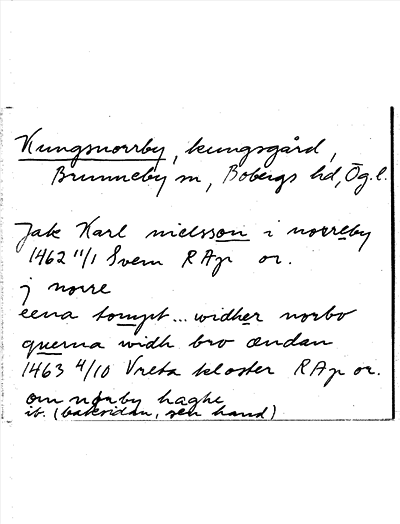 Kungsnorrby, kungsgård,
Brunneby sn, Bobergs hd, Ög.l.
Jak Karl nielsson i norreby
1462 11/1 Svem RAp or.
j norre
eena tompt... widher norbo
querna widh bro ændan
1463 4/10 Vreta kloster RAp or.
om norby haghe
ib. (baksidan, sen hand)